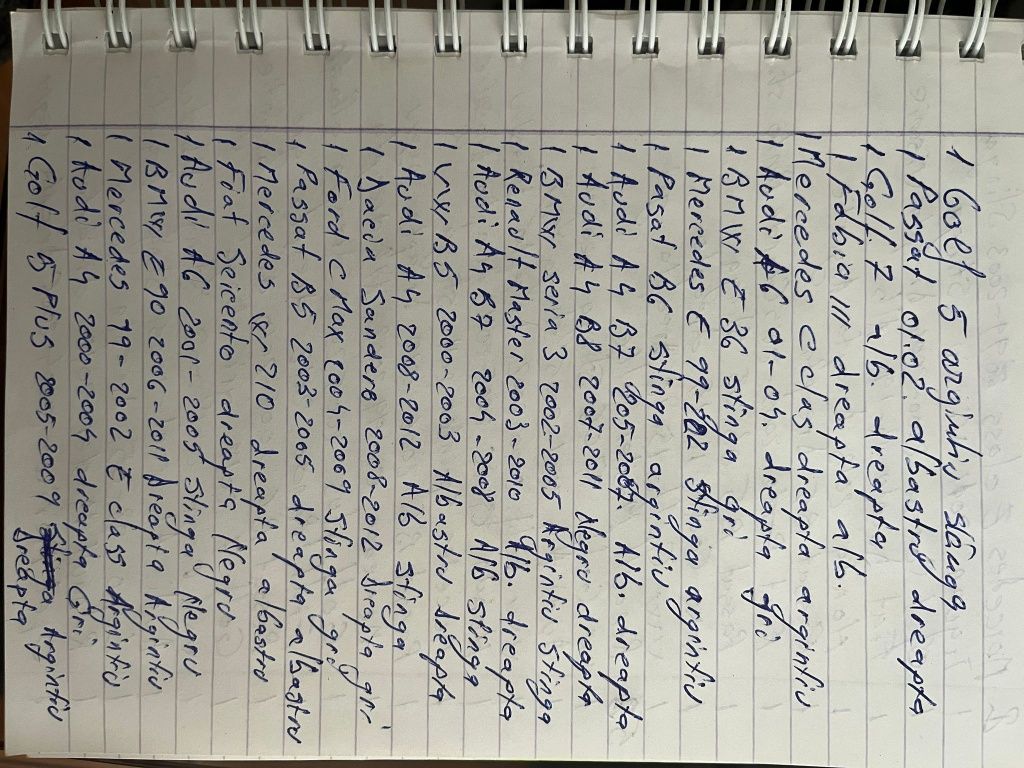 1 Golf 5 argintiu stânga
1 Passat 01.02. albastru dreapta
1 Golf. 7 alb. dreapta
1 Fabia III dreapta alb.
1 Mercedes C clas dreapta argintiu
1 Audi A6 01-04. dreapta gri
1 BMW E 36 stinga gri
1 Mercedes E 99-202 stinga argintiu
1 Pasat B6 stinga argintiu
1 Audi A4 B7 2005-2007. Alb. dreapta
1 Audi A4 B8 2007-2011 Negru dreapta
1 BMW seria 3 2002-2005 Argintiu stinga
1 Renault Master 2003-2010 Alb. dreapta
1 Audi A4 B7 2004-2008 Alb stinga
1 VW B5 2000-2003 Albastru dreapta
1 Audi A4 2008-2012 Alb stinga
1 Dacia Sandero 2008-2012 Dreapta gri
1 Ford C Max 2004-2009 Stinga gri
1 Passat B5 2003-2005 dreapta albastru
1 Mercedes W 210 dreapta albastru
1 Fiat Seicento dreapta Negru
1 Audi A6 2001-2005 Stinga Negru
1 BMW E90 2006-2011 Dreapta Argintiu
1 Mercedes 99-2002 E class Argintiu
1 Audi A4 2000-2004 dreapta Gri
1 Golf 5 Plus 2005-2009 Argintiu
Dreapta